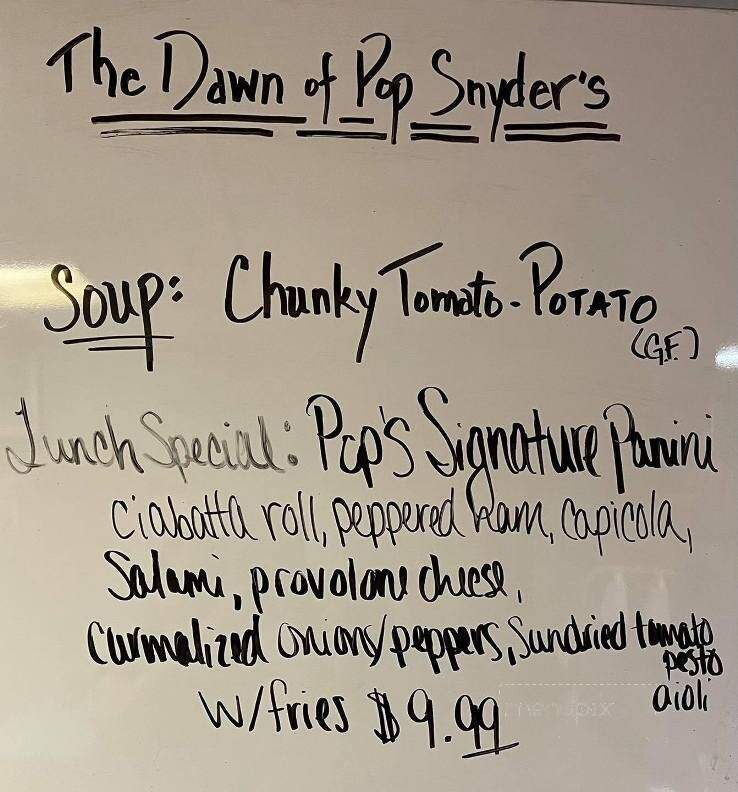 The Dawn of Pop Snyder's
Soup: Chunky Tomato-POTATO
(G.F.)
Lunch Special: Pop's Signature Panini
ciabatta roll, peppered ham, capicola,
Salami, provolone cheese,
Carmalized onions/peppers, Sundried tomato
pesto
aioli
w/fries $9.99
menupix